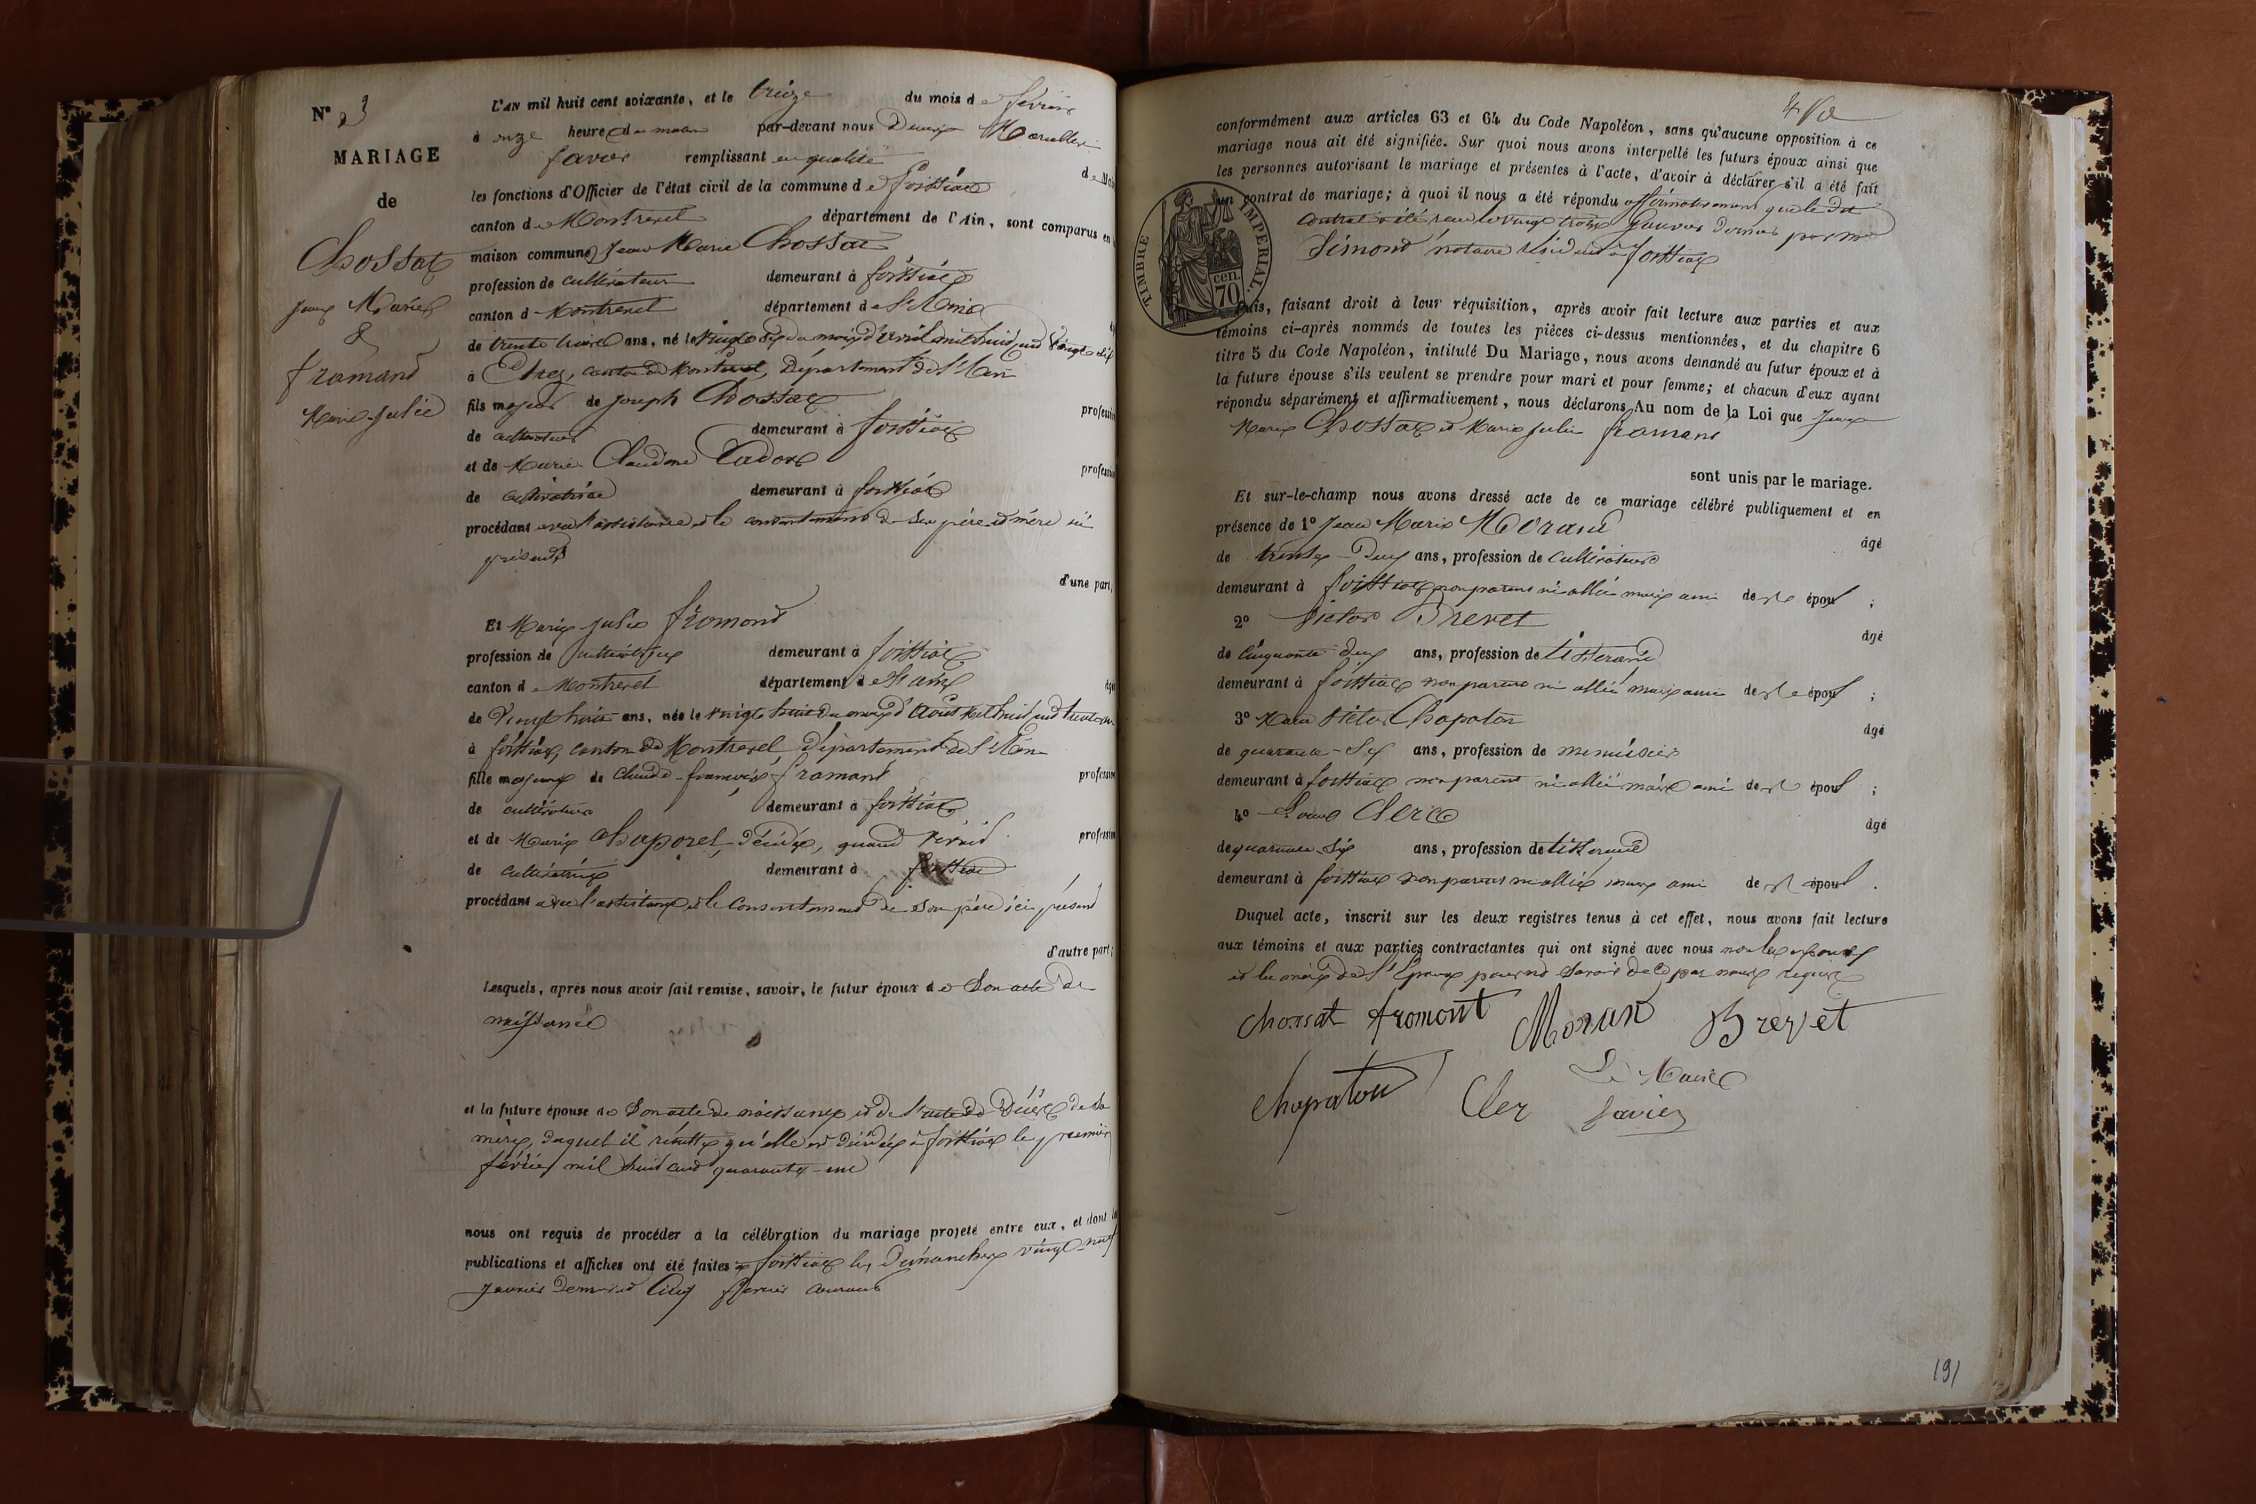 N° 3
MARIAGE
de
Chossat
Jean Marie
&
fromand
Marie-Julie
L'AN mil huit cent soixante, et le treize du mois de février
à onze heures du matin par-devant nous Denis Marcellin
favier remplissant en qualité de Maire
les fonctions d'Officier de l'état civil de la commune de foissiat
canton de Montrevel département de l'Ain, sont comparus en
maison commune, Jean Marie Chossat
profession de cultivateur demeurant à foissiat
canton de Montrevel département de l'Ain
de trente trois ans, né le vingt six du mois d'avril mil huit cent vingt six
à Etrez, canton de Montrevel, Département de l'Ain
fils majeur de Joseph Chossat profession
de cultivateur demeurant à foissiat
et de Marie Claudine Cadot profession
de cultivatrice demeurant à foissiat
procédant avec l'assistance et le consentement de ses père et mère ici
présents
d'une part,
Et Marie Julie fromond
profession de cultivatrice demeurant à foissiat
canton de Montrevel département de l'ain
de vingt huit ans, née le vingt huit du mois d'août mil huit cent trente un
à foissiat, canton de Montrevel, département de l'Ain
fille majeure de Claude-françois fromand profession
de cultivateur demeurant à foissiat
et de Marie Chaporel, décédée, quand vivait profession
de cultivatrice demeurant à foissiat
procédant avec l'assistance et le consentement de son père ici présent
d'autre part;
Lesquels, après nous avoir fait remise, savoir, le futur époux de Son acte de
naissance
et la future épouse de Son acte de naissance et de l'acte de Décès de sa
mère, duquel il résulte qu'elle est décédée à foissiat le premier
février mil huit cent quarante-un
nous ont requis de procéder à la célébration du mariage projeté entre eux, et dont les
publications et affiches ont été faites à foissiat les Dimanches vingt-neuf
janvier dernier et Cinq février courant
conformément aux articles 63 et 64 du Code Napoléon, sans qu'aucune opposition à ce
mariage nous ait été signifiée. Sur quoi nous avons interpellé les futurs époux ainsi que
les personnes autorisant le mariage et présentes à l'acte, d'avoir à déclarer s'il a été fait
un contrat de mariage; à quoi il nous a été répondu affirmativement que le dit
contrat a été reçu le vingt trois Janvier dernier par Me
Simond notaire résidant à foissiat
TIMBRE IMPERIAL.
70 cen.
Puis, faisant droit à leur réquisition, après avoir fait lecture aux parties et aux
témoins ci-après nommés de toutes les pièces ci-dessus mentionnées, et du chapitre 6
titre 5 du Code Napoléon, intitulé Du Mariage, nous avons demandé au futur époux et à
la future épouse s'ils veulent se prendre pour mari et pour femme; et chacun d'eux ayant
répondu séparément et affirmativement, nous déclarons Au nom de la Loi que Jean
Marie Chossat et Marie Julie fromand
sont unis par le mariage.
Et sur-le-champ nous avons dressé acte de ce mariage célébré publiquement et en
présence de 1° Jean Marie Morand âgé
de trente-Deux ans, profession de cultivateur
demeurant à foissiat non parent ni allié mais ami de l' époux ;
2° Victor Brevet âgé
de Cinquante deux ans, profession de tisserand
demeurant à foissiat non parent ni allié mais ami de l' époux ;
3° Victor Chapaton âgé
de quarante-six ans, profession de menuisier
demeurant à foissiat non parent ni allié mais ami de l' époux ;
4° Clerc âgé
de quarante-six ans, profession de tisserand
demeurant à foissiat non parent ni allié mais ami de l' époux .
Duquel acte, inscrit sur les deux registres tenus à cet effet, nous avons fait lecture
aux témoins et aux parties contractantes qui ont signé avec nous non les époux
et la mère de l'Epoux pour ne savoir de ce par nous requis
Chossat fromont Moran Brevet
Le Maire
Chapaton Cler favier
191